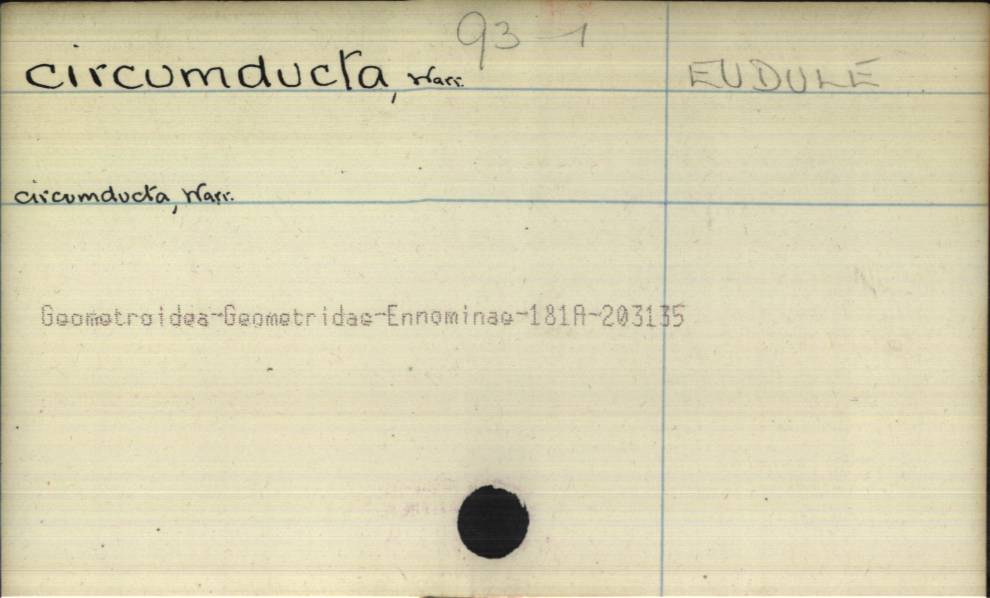 93-1
circumducta, Warr.
EUDULE
circumducta, Warr.
Geometroidea-Geometridae-Ennominae-181A-203135